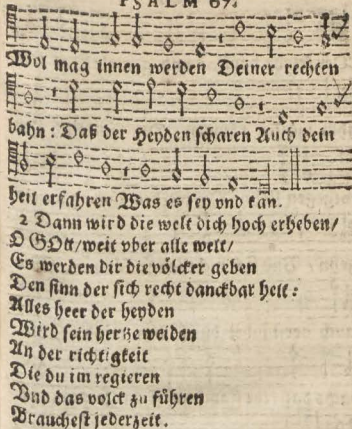 PSALM 67.
Wol mag innen werden Deiner rechten
bahn: Daß der Heyden scharen Auch dein
heil erfahren Was es sey vnd kan.
2 Dann wird die welt dich hoch erheben/
O GOtt/weit vber alle welt/
Es werden dir die völcker geben
Den sinn der sich recht danckbar helt:
Alles heer der heyden
Wird sein hertze weiden
An der richtigkeit
Die du im regieren
Vnd das volck zu führen
Brauchest jederzeit.